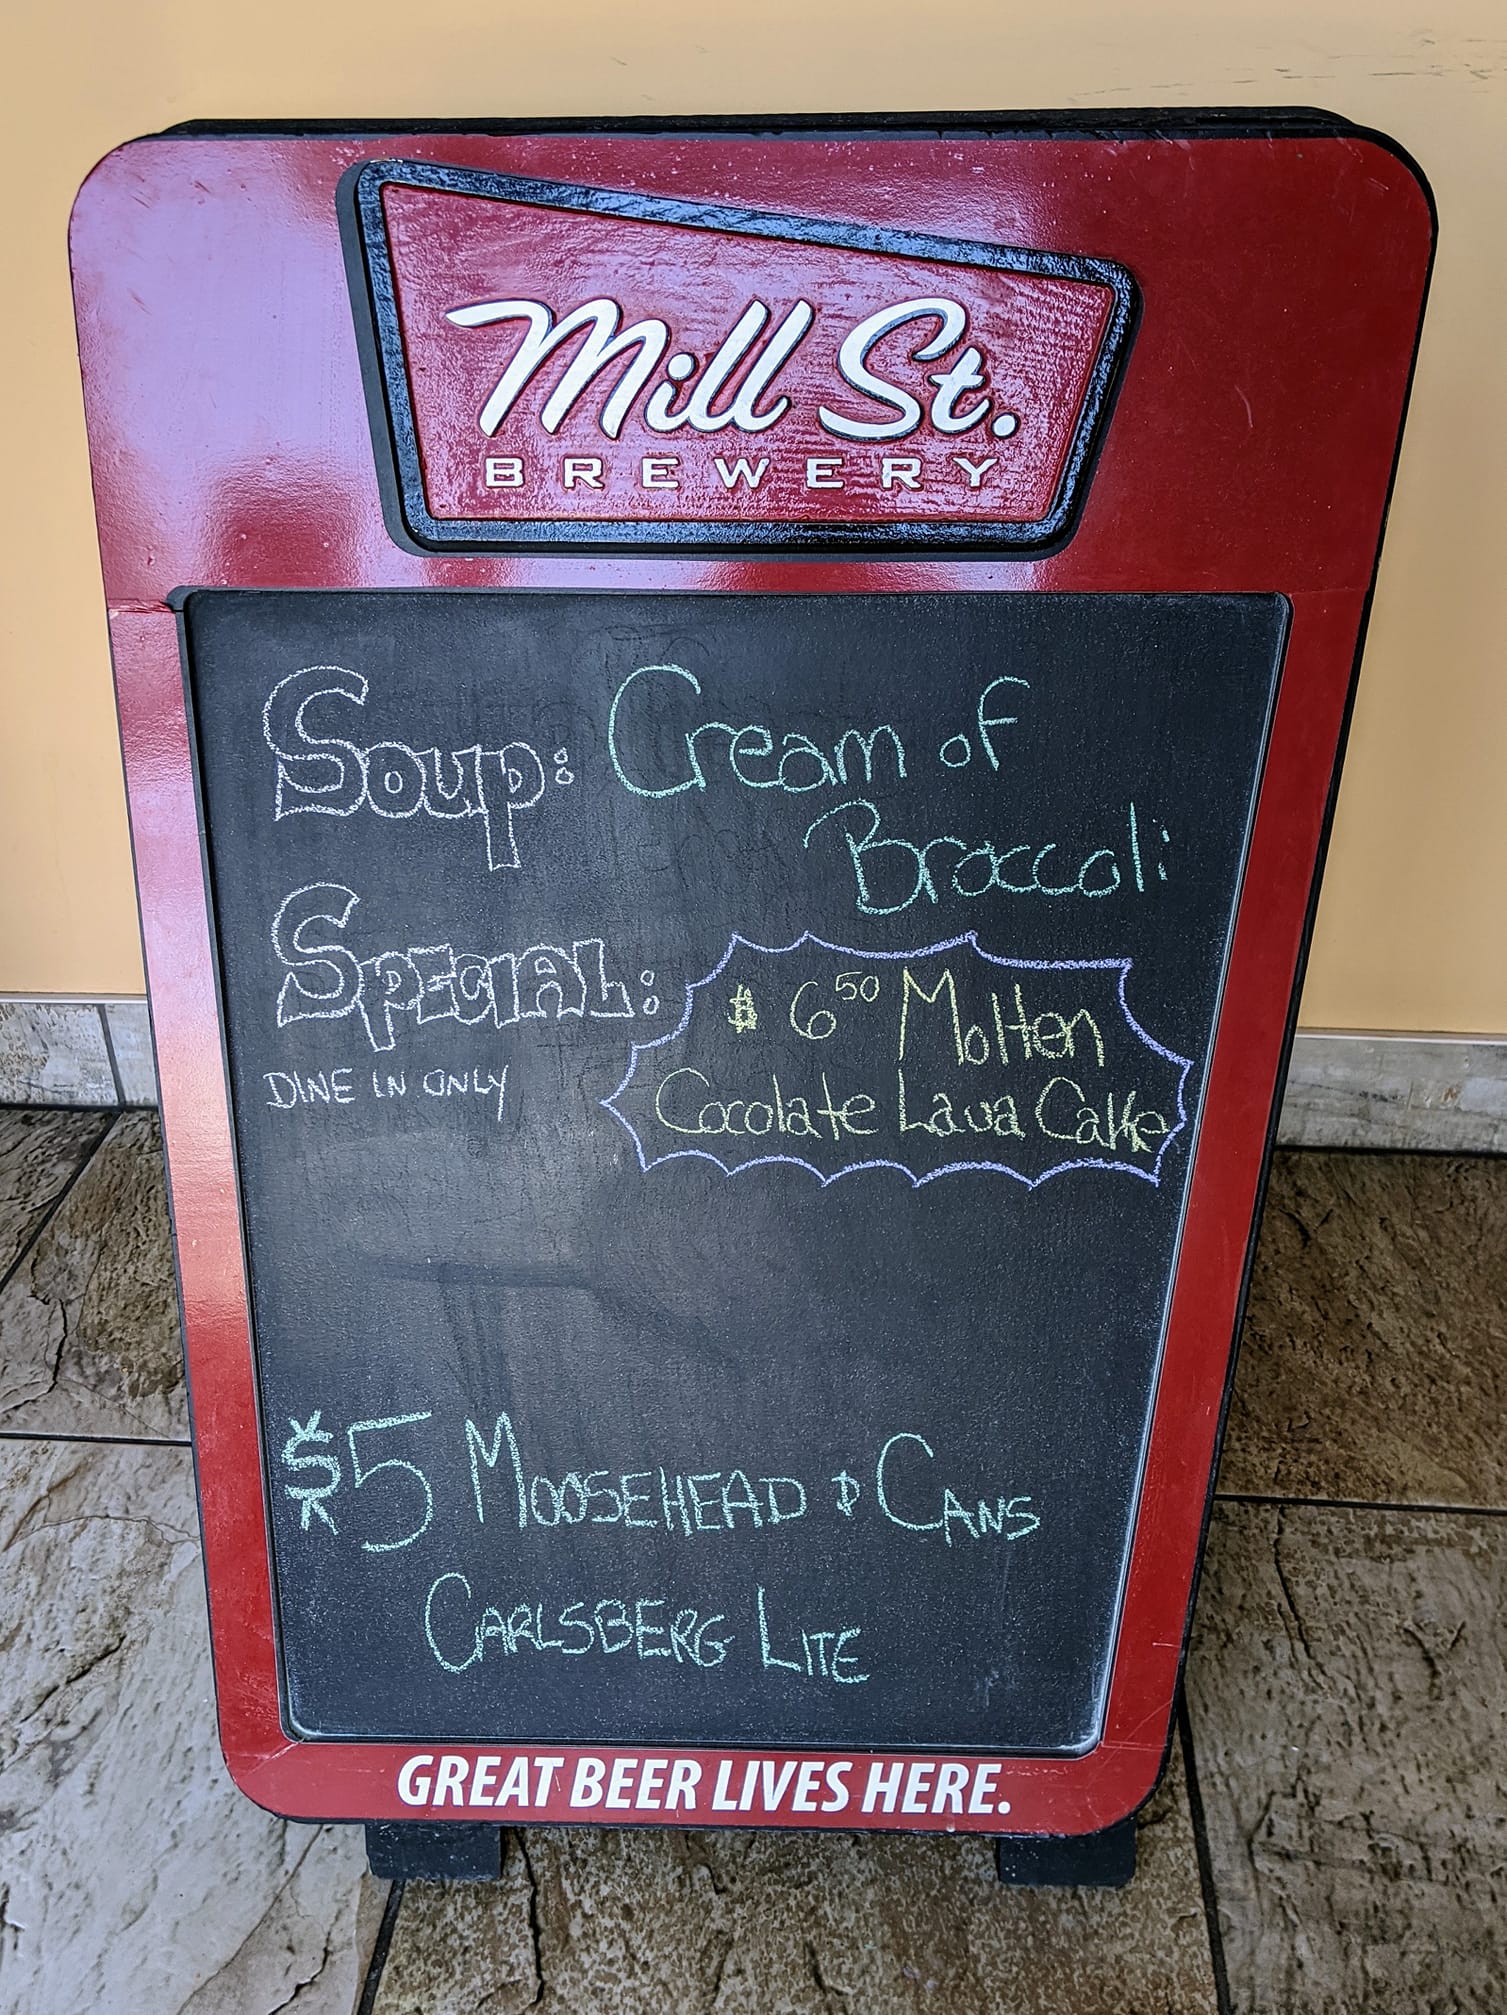 Mill St.
BREWERY
Soup: Cream of
Broccoli
SPECIAL: $ 6 50 Molten
DINE IN ONLY Cocolate Lava Cake
$5 MOOSEHEAD & CANS
CARLSBERG LITE
GREAT BEER LIVES HERE.